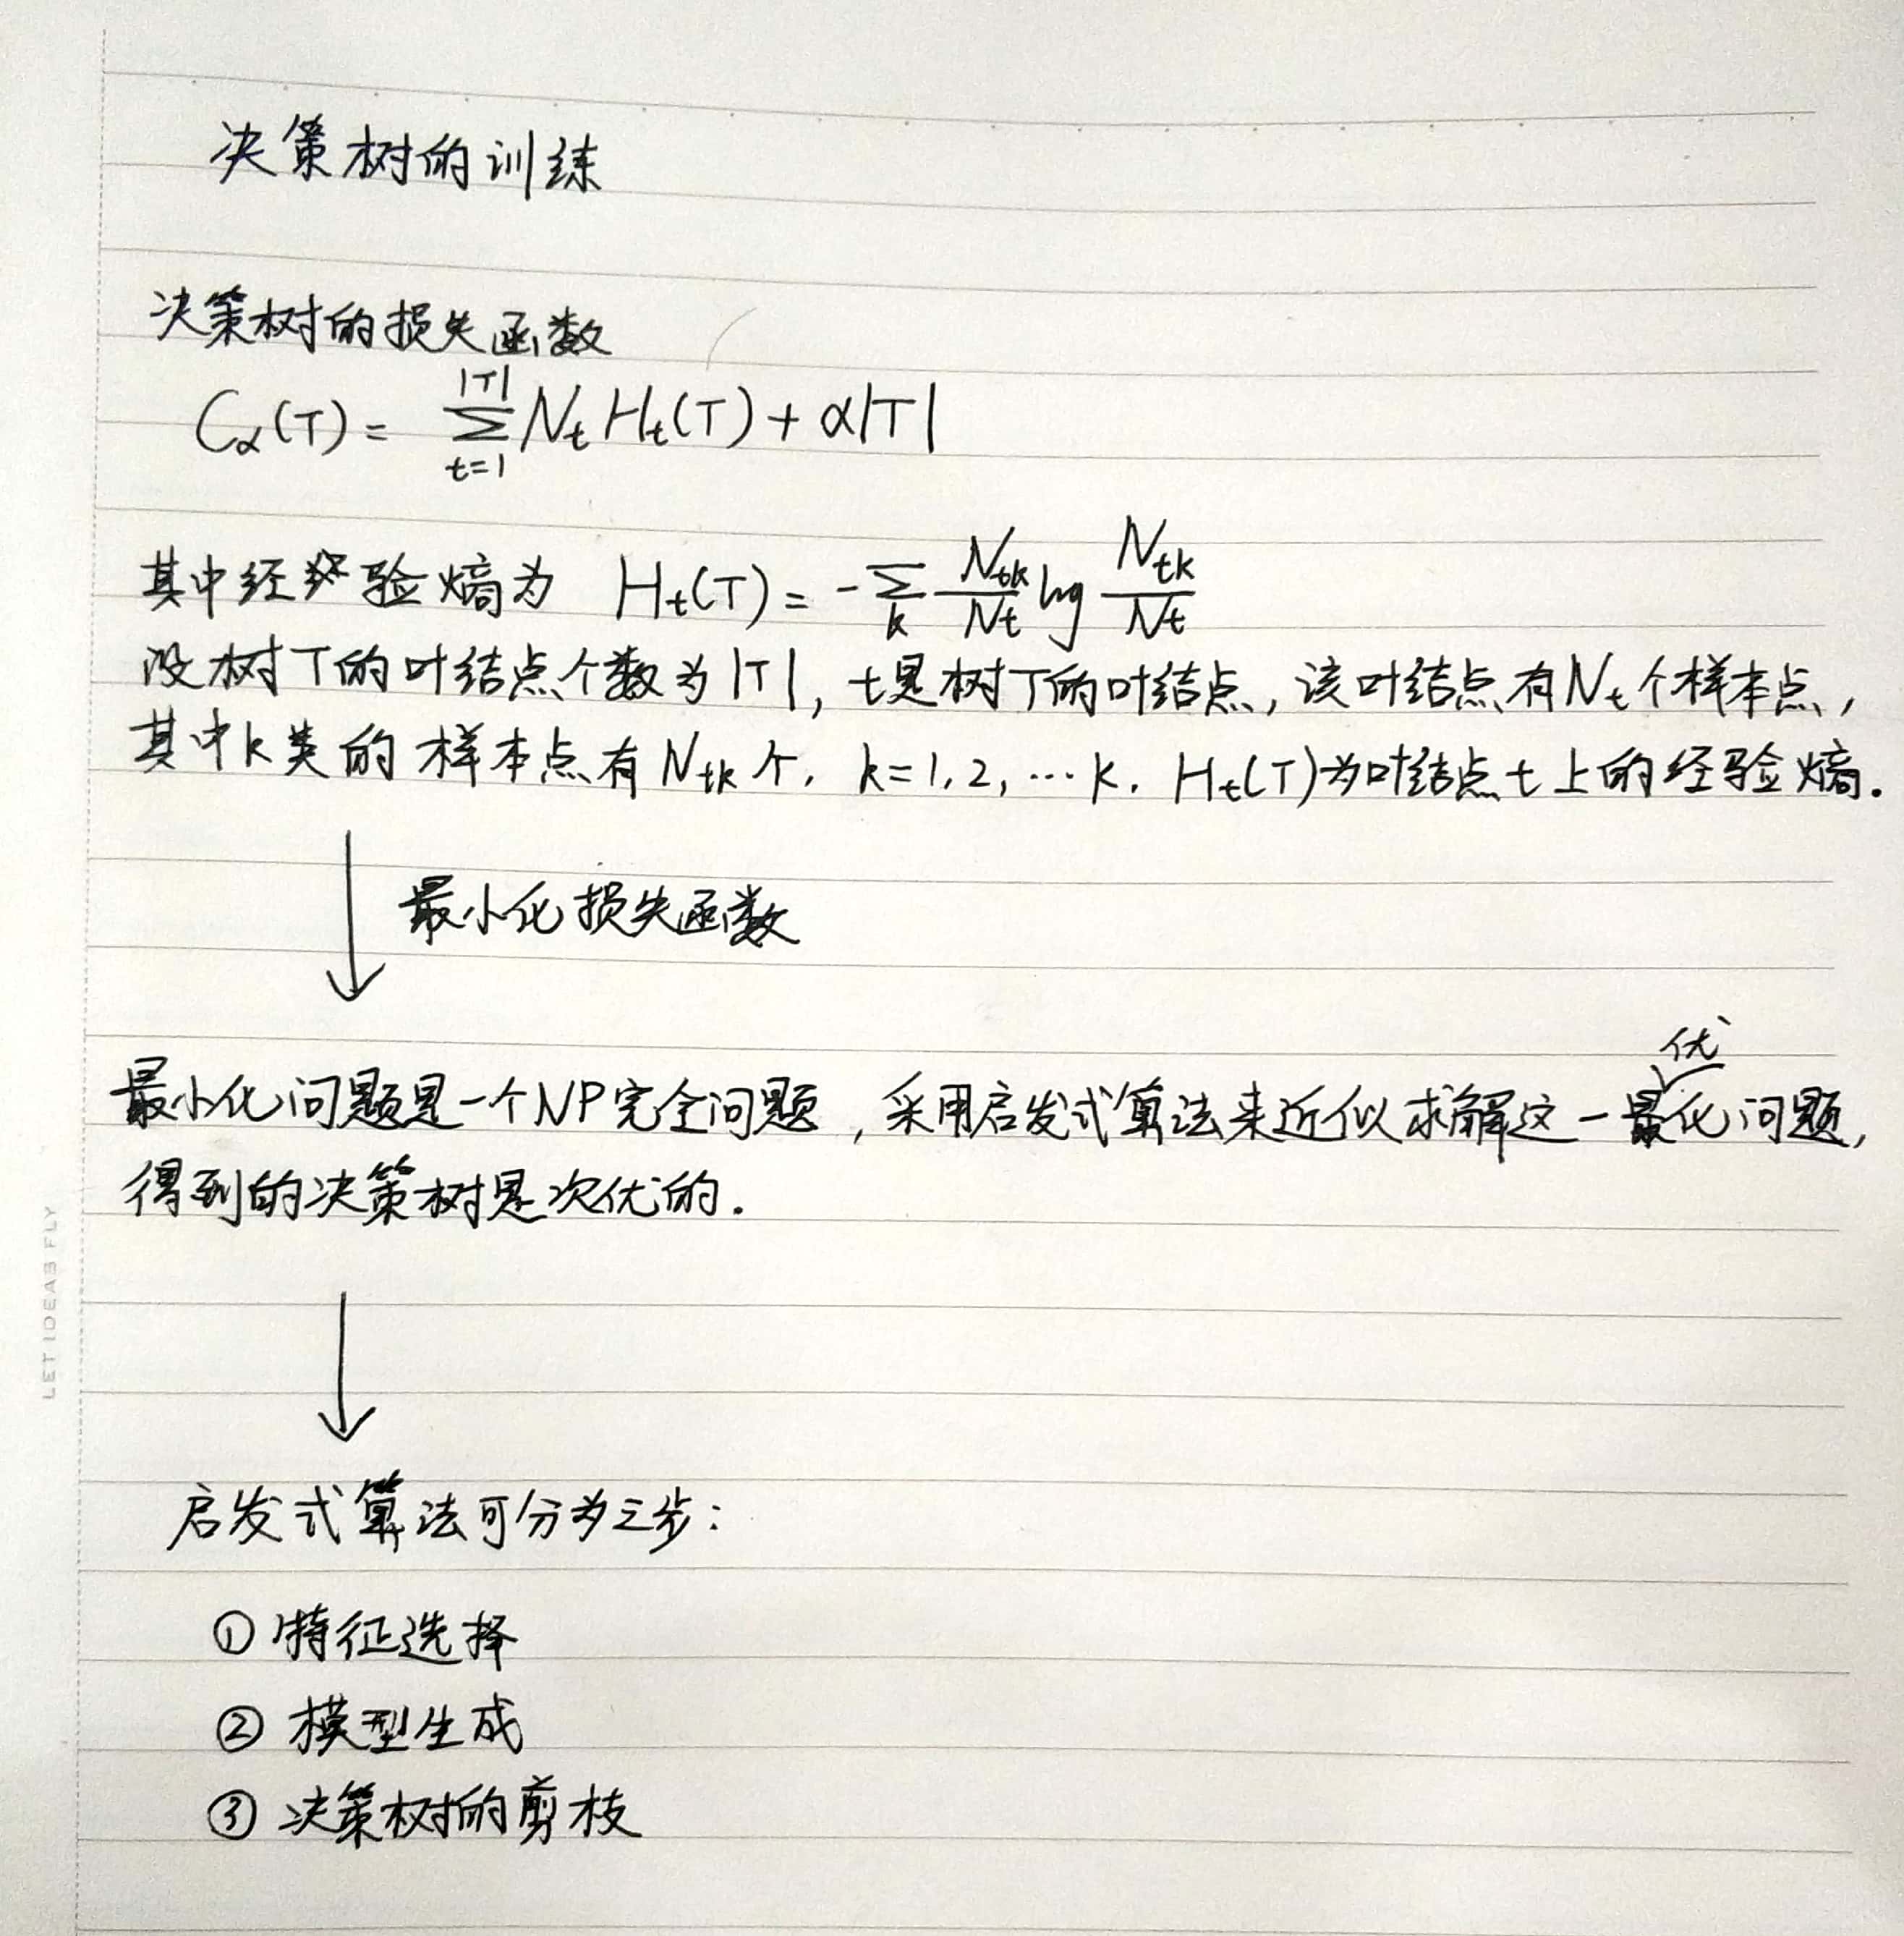 决策树的训练
决策树的损失函数
C_α(T) = \sum_{t=1}^{|T|} N_t H_t(T) + α|T|
其中经验熵为 H_t(T) = -\sum_k \frac{N_{tk}}{N_t} log \frac{N_{tk}}{N_t}
设树T的叶结点个数为|T|, t是树T的叶结点, 该叶结点有N_t个样本点,
其中k类的样本点有N_{tk}个. k=1,2,…K. H_t(T)为叶结点t上的经验熵.
↓ 最小化损失函数
最小化问题是一个NP完全问题, 采用启发式算法来近似求解这一最优化问题,
得到的决策树是次优的.
↓
启发式算法可分为三步:
① 特征选择
② 模型生成
③ 决策树的剪枝
LET IDEAS FLY